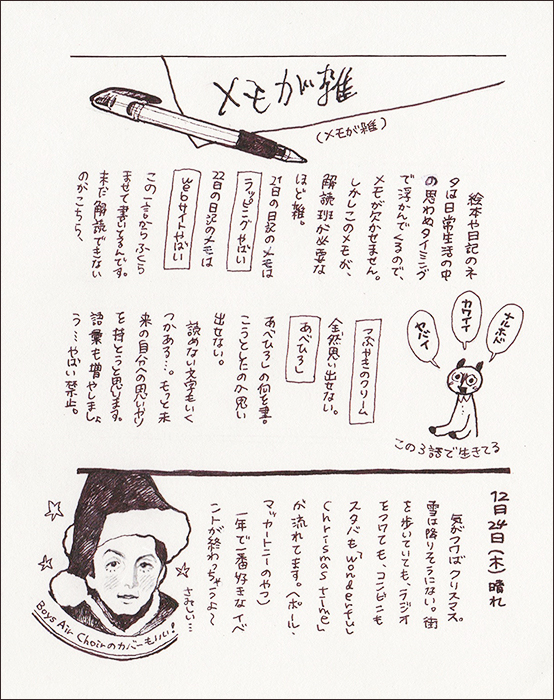 メモが雑
(メモが雑)
絵本や日記のネ
タは日常生活の中
の思わぬタイミング
で浮かんでくるので、
メモが欠かせません。
しかしこのメモが、
解読班が必要な
ほど雑。
21日の日記のメモは
ラッピングやばい
22日の日記のメモは
webサイトやばい
この一言からふくら
ませて書いてるんです。
未だ解読できない
のがこちら、
つぶやきのクリーム
全然思い出せない。
あべひろし
あべひろしの何を書
こうとしたのか思い
出せない。
読めない文字もいく
つかある…。もっと未
来の自分への思いやり
を持とうと思います。
語彙も増やしましょ
う…やばい禁止。
ナルホド
カワイイ
ヤバイ
この3語で生きてる
12日24日(木)晴れ
気がつけばクリスマス。
雪は降りそうにない。街
を歩いていても、ラジオ
をつけても、コンビニも
スタバも「Wonderful
Chrismas time」
が流れてます。(ポール・
マッカートニーのやつ)
一年で一番好きなイベ
ントが終わっちゃうよ〜
さみしい…
Boys Air Choirのカバーもいい!